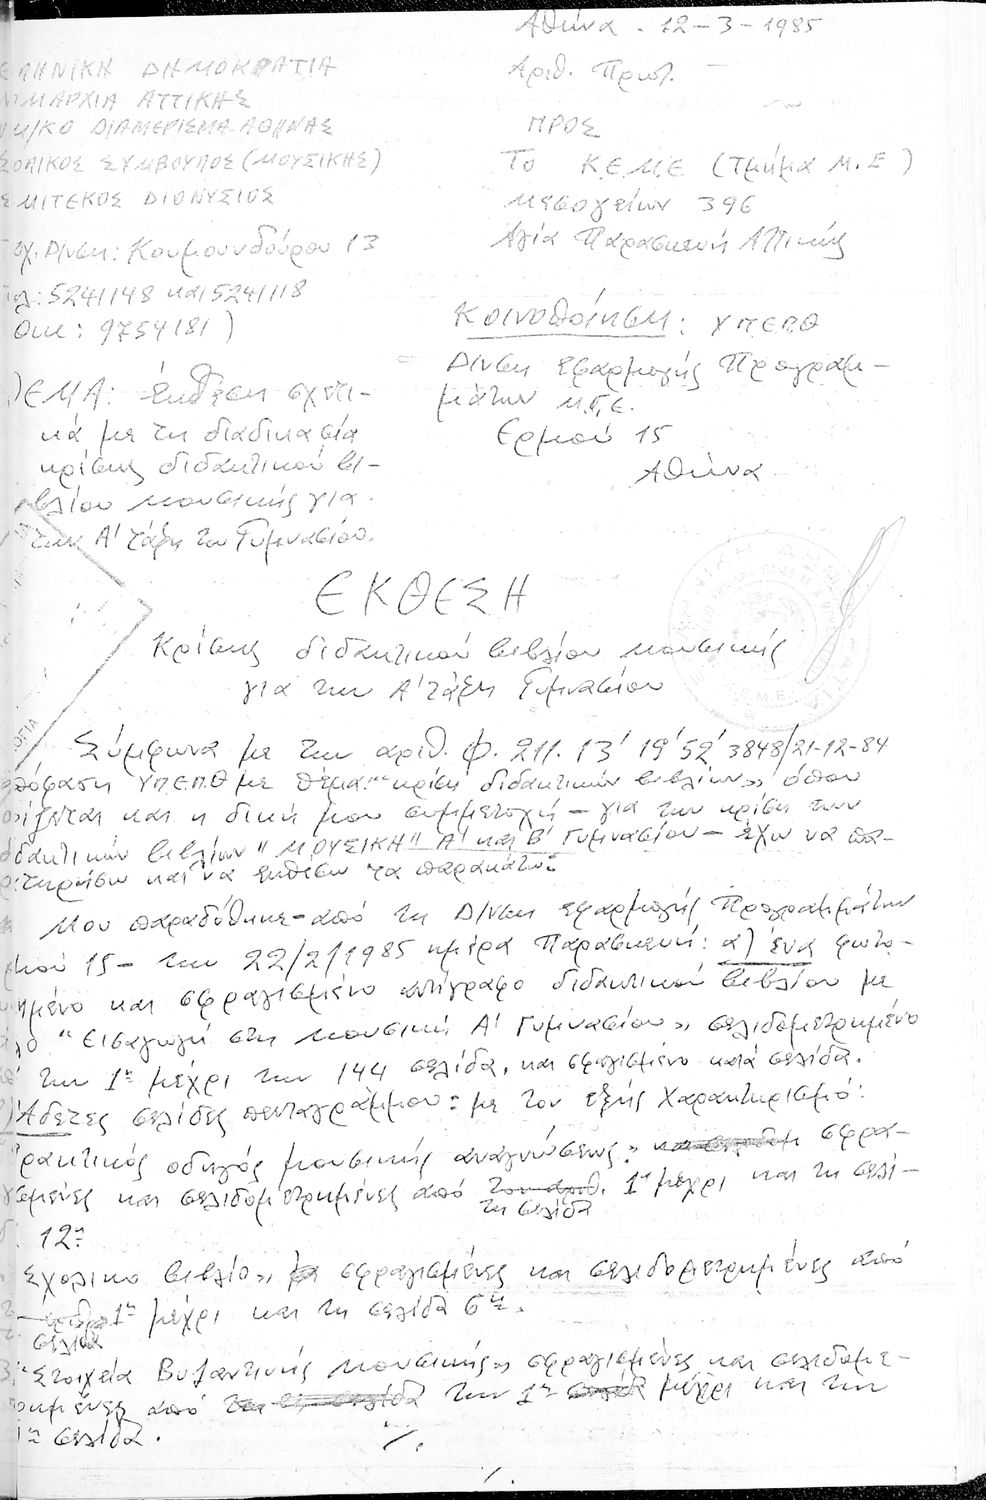 Αθήνα. 12-3-1985
ΕΛΛΗΝΙΚΗ ΔΗΜΟΚΡΑΤΙΑ
ΝΟΜΑΡΧΙΑ ΑΤΤΙΚΗΣ
Ν/ΚΟ ΔΙΑΜΕΡΙΣΜΑ ΑΘΗΝΑΣ
ΣΧΟΛΙΚΟΣ ΣΥΜΒΟΥΛΟΣ (ΜΟΥΣΙΚΗΣ)
ΣΜΙΤΕΚΟΣ ΔΙΟΝΥΣΙΟΣ
Ταχ. Δ/νση: Κουμουνδούρου 13
Τηλ: 5241148 και 5241118
Οικ: 9754181)
Αριθ. Πρωτ.
ΠΡΟΣ
Το Κ.Ε.Μ.Ε (Τμήμα Μ.Ε)
Μεσογείων 396
Αγία Παρασκευή Αττικής
Κοινοποίηση: ΥΠΕΠΘ
Δ/νση Εφαρμογής Προγραμ-
μάτων Μ.Γ.Ε.
Ερμού 15
Αθήνα
ΘΕΜΑ: Έκθεση σχετι-
κά με τη διαδικασία
κρίσης διδακτικού βι-
βλίου μουσικής για
την Α' τάξη του Γυμνασίου.
ΕΚΘΕΣΗ
Κρίσης διδακτικού βιβλίου μουσικής
για την Α' τάξη Γυμνασίου
Σύμφωνα με την αριθ. Φ. 211. 13' 19' 52' 3848/21-12-84
απόφαση ΥΠ.Ε.Π.Θ με θέμα: "κρίση διδακτικών βιβλίων» όπου
ορίζεται και η δική μου συμμετοχή - για την κρίση των
διδακτικών βιβλίων "ΜΟΥΣΙΚΗ" Α' και Β' Γυμνασίου - έχω να πα-
ρατηρήσω και να εκθέσω τα παρακάτω:
Μου παραδόθηκε - από τη Δ/νση εφαρμογής Προγραμμάτων
Ερμού 15 - την 22/2/1985 ημέρα Παρασκευή: α) ένα φωτο-
τυπημένο και σφραγισμένο αντίγραφο διδακτικού βιβλίου με
τίτλο "Εισαγωγή στη μουσική Α' Γυμνασίου» σελιδομετρημένο
από την 1η μέχρι την 144 σελίδα, και σφραγισμένο κατά σελίδα.
Άδετες σελίδες πενταγράμμου: με τον εξής χαρακτηρισμό:
Πρακτικός οδηγός μουσικής αναγνώσεως» σφρα-
γισμένες και σελιδομετρημένες από τη σελίδα 1η μέχρι και τη σελί-
δα 12η
Σχολικό βιβλίο» σφραγισμένες και σελιδομετρημένες από
σελίδα 1η μέχρι και τη σελίδα 6η.
3) "Στοιχεία Βυζαντινής μουσικής» σφραγισμένες και σελιδομε-
τρημένες από την 1η μέχρι και την
1η σελίδα.
./.